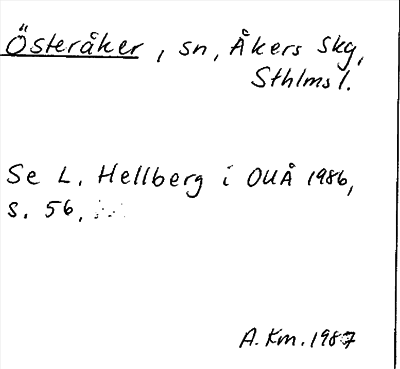 Österåker, sn, Åkers skg,
Sthlms l.
Se L. Hellberg i OUÅ 1986,
s. 56.
A. Km. 1987